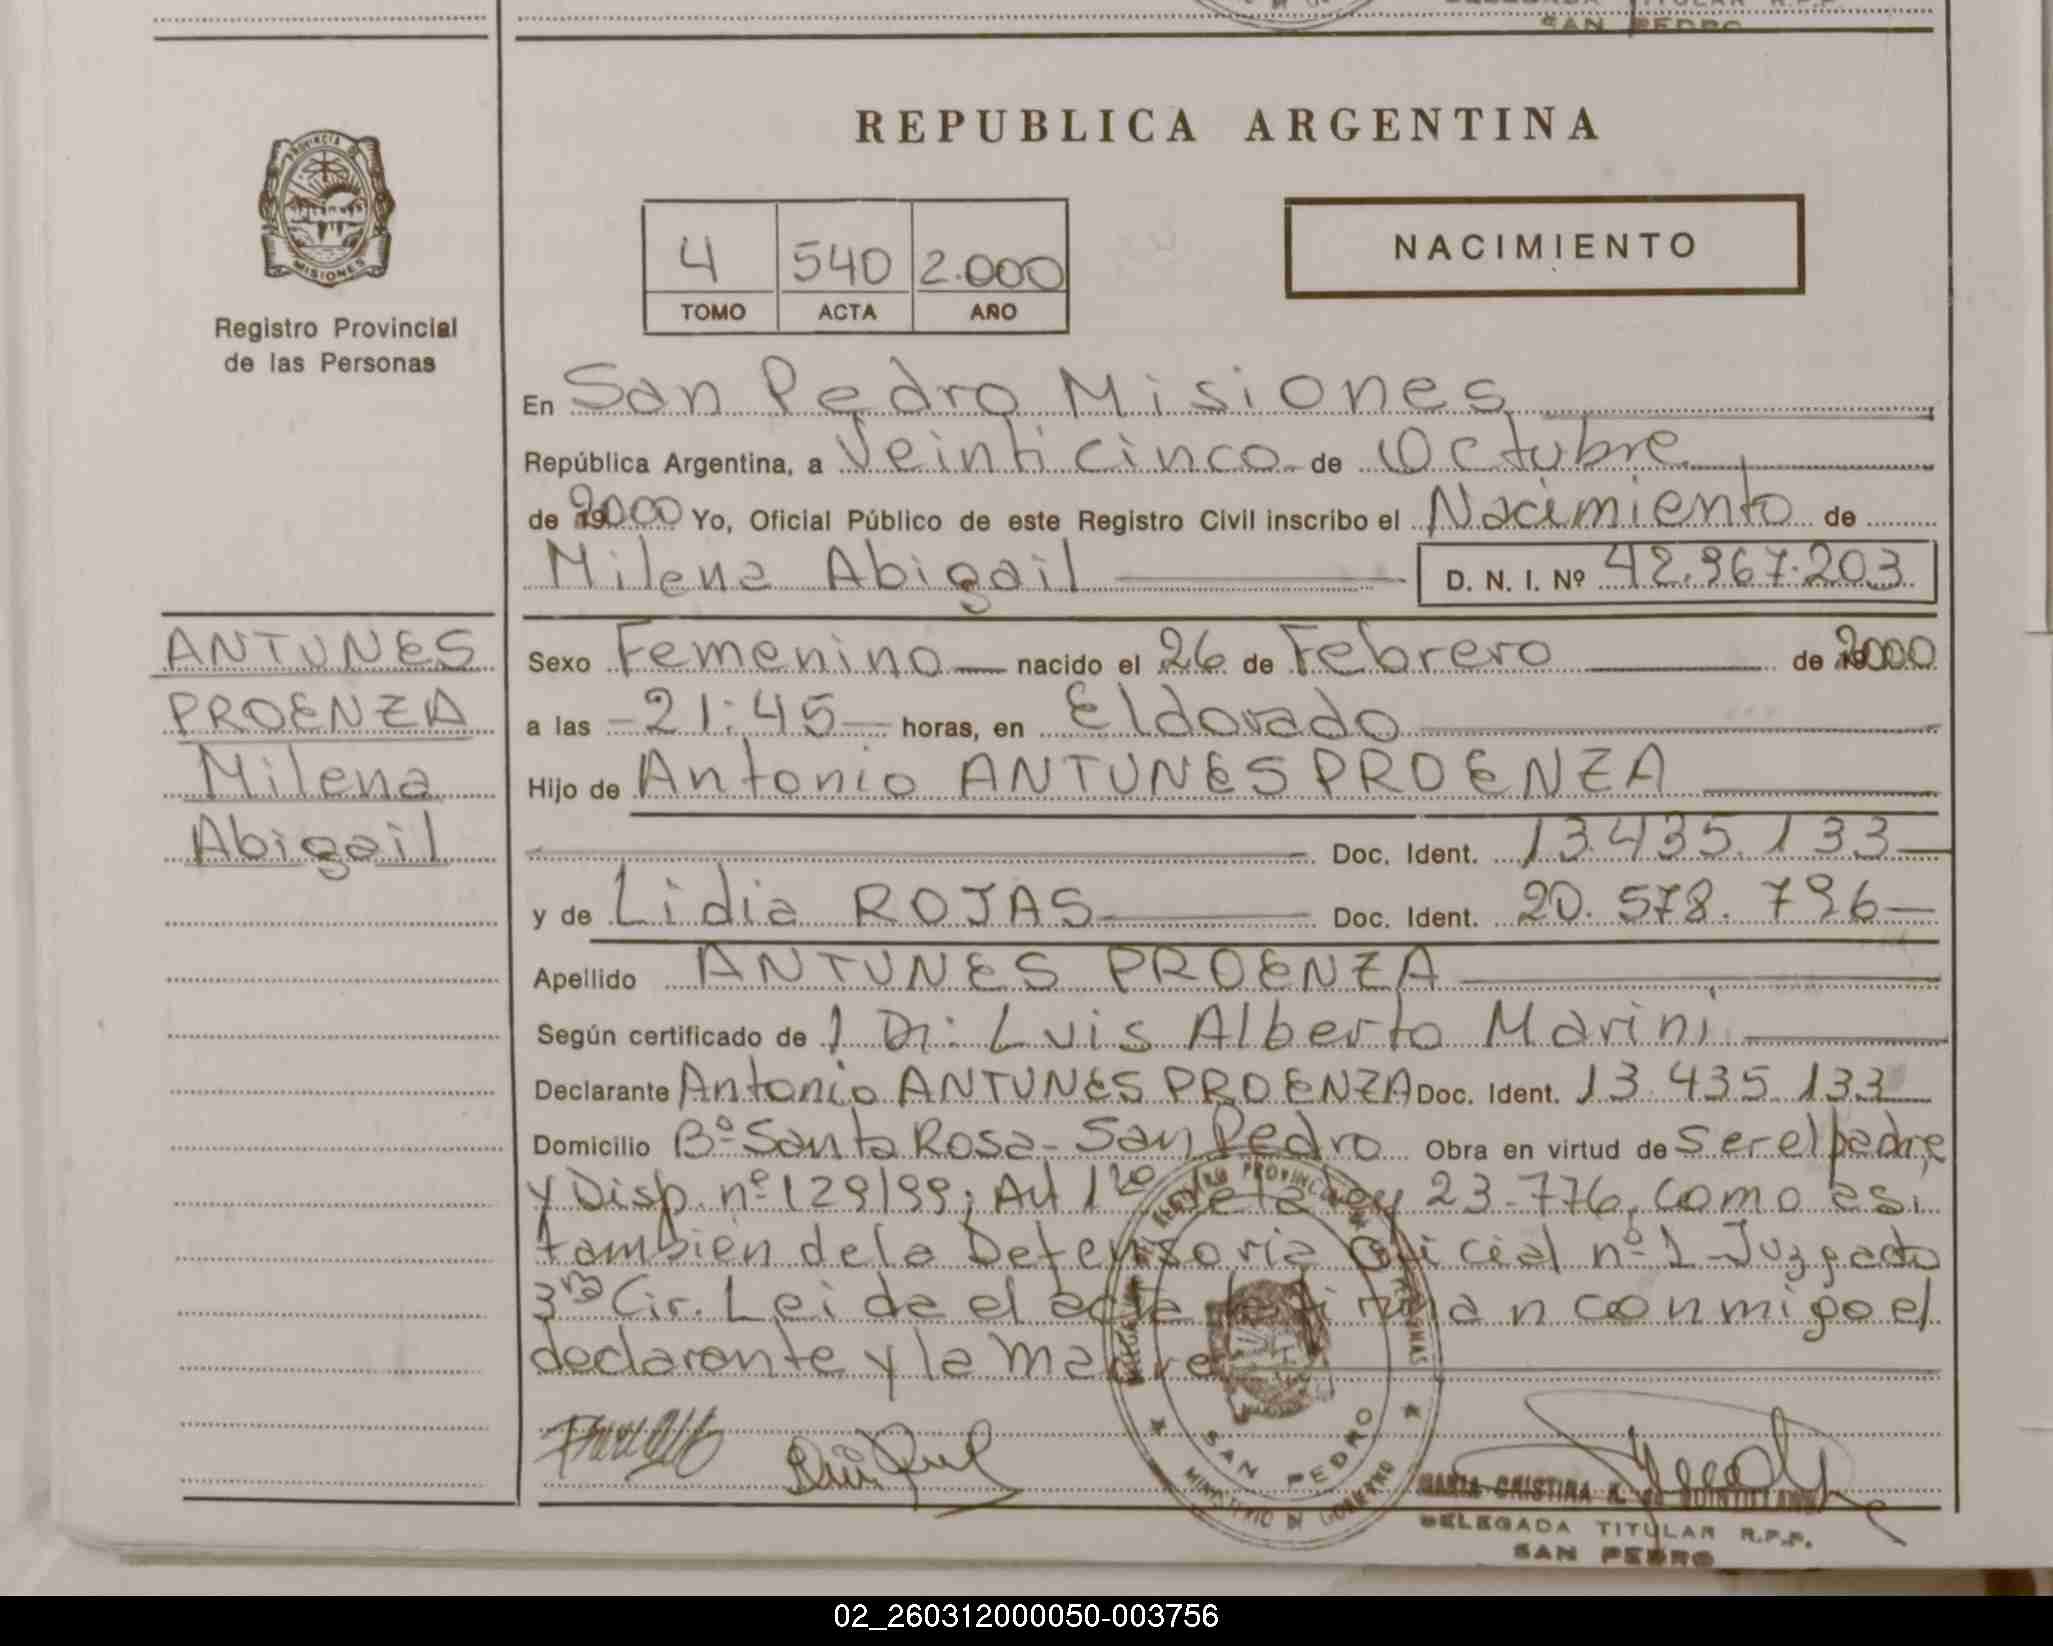 SAN PEDRO
REPUBLICA ARGENTINA
PROVINCIA DE
MISIONES
Registro Provincial
de las Personas
4 540 2.000
TOMO ACTA AÑO
NACIMIENTO
En San Pedro Misiones
República Argentina, a Veinticinco de Octubre
de 2000 Yo, Oficial Público de este Registro Civil inscribo el Nacimiento de
Milena Abigail D. N. I. Nº 42.967.203
ANTUNES
PROENZA
Milena
Abigail
Sexo Femenino nacido el 26 de Febrero de 2000
a las 21:45 horas, en Eldorado
Hijo de Antonio ANTUNES PROENZA
Doc. Ident. 13.435.133
y de Lidia ROJAS Doc. Ident. 20.578.796
Apellido ANTUNES PROENZA
Según certificado de 1 Dr: Luis Alberto Marini
Declarante Antonio ANTUNES PROENZA Doc. Ident. 13.435.133
Domicilio Bº Santa Rosa - San Pedro Obra en virtud de ser el padre
y Disp. nº 129/99; Art 1ro de la ley 23.776, como asi
también de la Defensoria Oficial nº 1 Juzgado
3ra Cir. Leida el acta la firman conmigo el
declarante y la madre
SAN PEDRO
MINISTERIO DE GOBIERNO
MARIA CRISTINA
DELEGADA TITULAR R.P.P.
SAN PEDRO
02_260312000050-003756